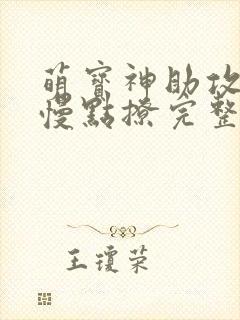 萌寶神助攻
慢點撩完整
王瓊榮